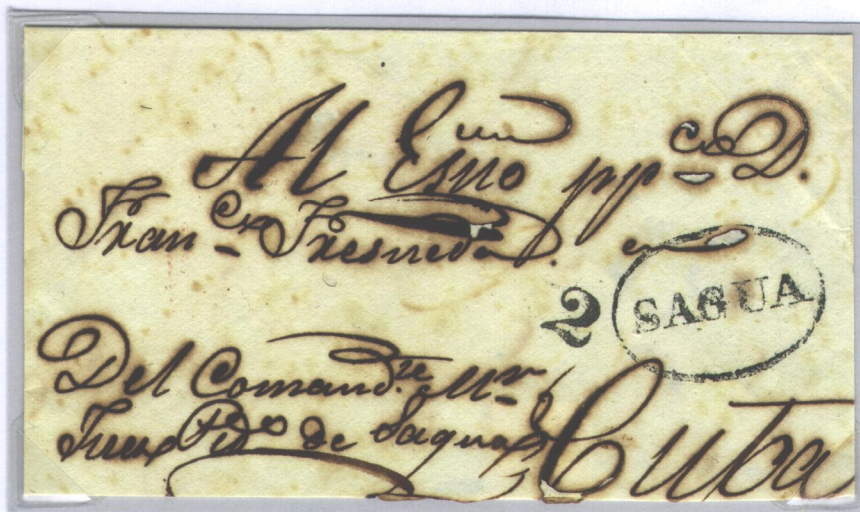 Al Esno pp.co D.
Fran.co Fresneda. en
2 SAGUA
Del Comand.te Mr
Juez P.do de Sagua
Cuba